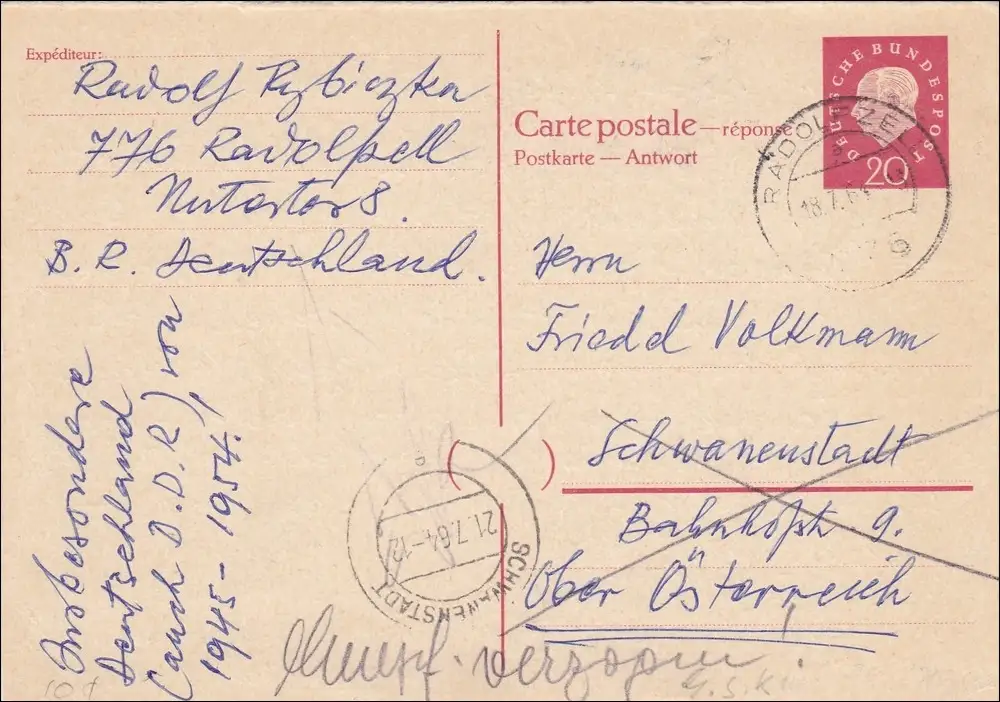 Expéditeur:
Radolf Rybiczka
776 Radolfzell
8.
B. R. Deutschland.
Insbesondere
Deutschland
(auch D. D. R) von
1945 - 1954!
Carte postale — réponse
Postkarte — Antwort
DEUTSCHE BUNDESPOST
20
RADOLFZELL
18.7.64
Herrn
Friedl Volkmann
Schwanenstadt
Bahnhofstr 9.
Ober Österreich
( )
SCHWANENSTADT
21.7.64-12
verzogen.